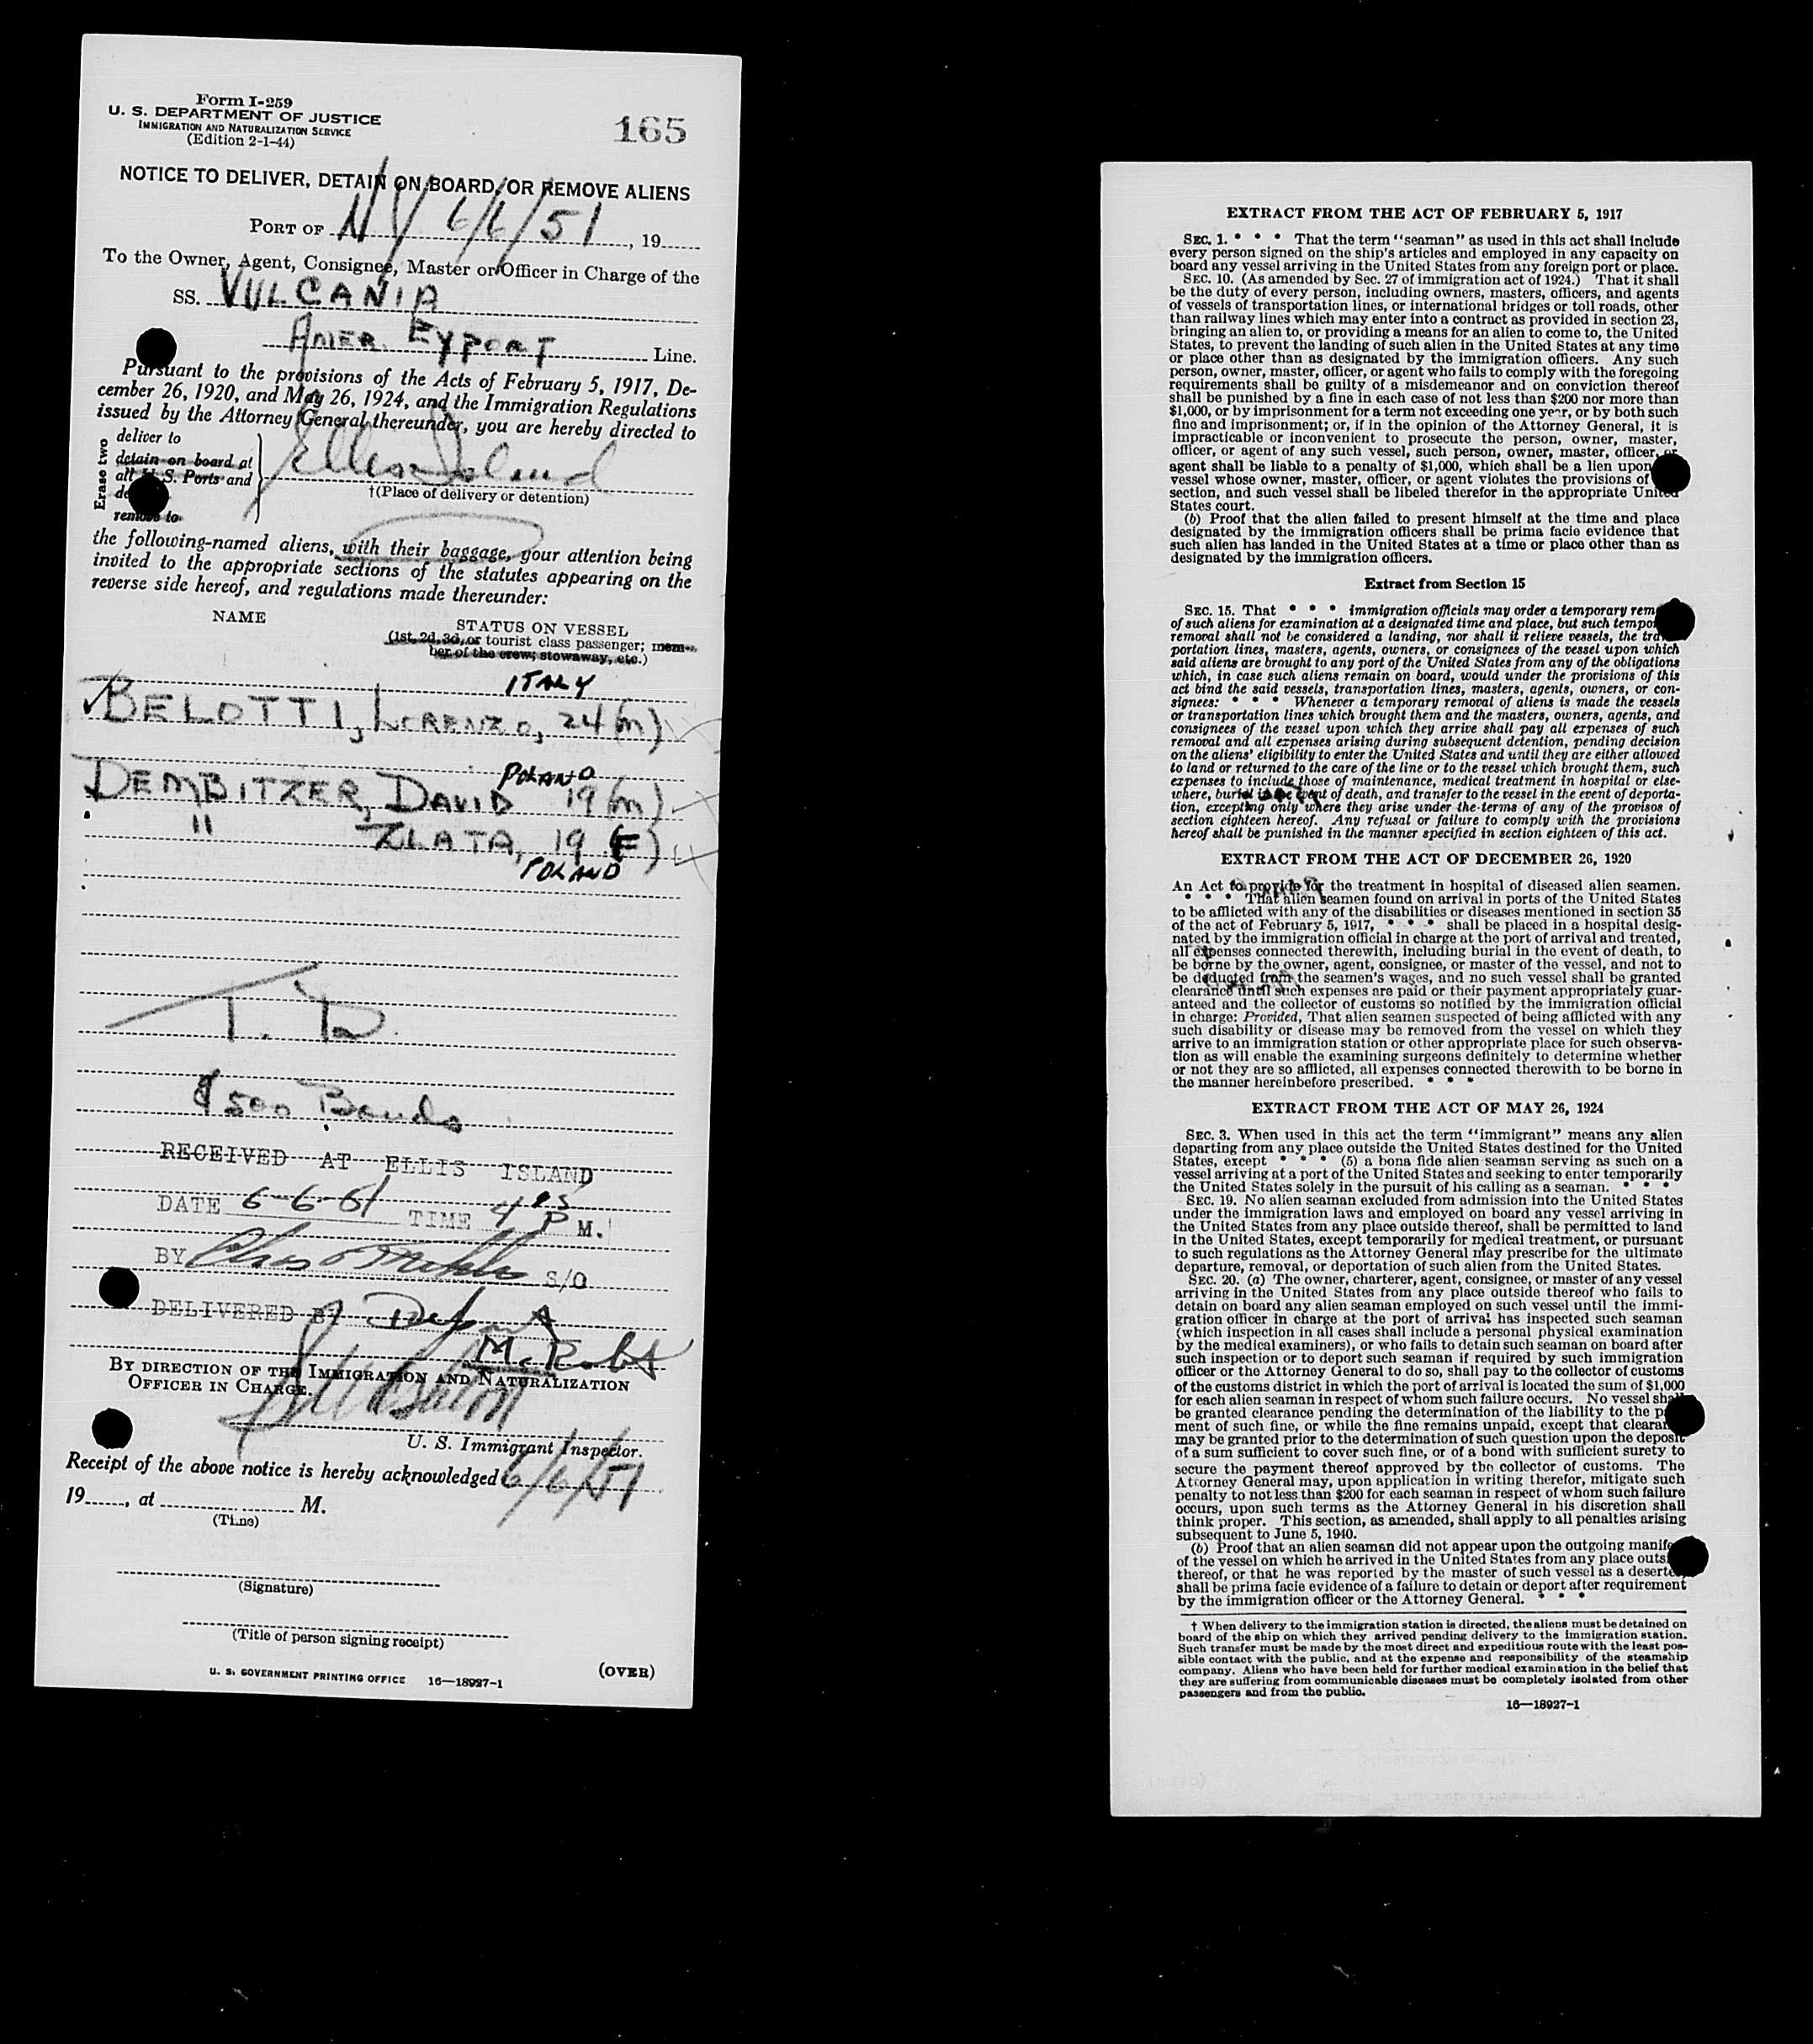 Form I-259
U. S. DEPARTMENT OF JUSTICE
IMMIGRATION AND NATURALIZATION SERVICE
(Edition 2-1-44)
165
NOTICE TO DELIVER, DETAIN ON BOARD, OR REMOVE ALIENS
PORT OF NY 6/6/51, 19
To the Owner, Agent, Consignee, Master or Officer in Charge of the
SS. VULCANIA
AMER. EXPORT Line.
Pursuant to the provisions of the Acts of February 5, 1917, De-
cember 26, 1920, and May 26, 1924, and the Immigration Regulations
issued by the Attorney General thereunder, you are hereby directed to
Erase two
deliver to
detain on board at
all U.S. Ports and
remove to
Ellis Island
†(Place of delivery or detention)
the following-named aliens, with their baggage, your attention being
invited to the appropriate sections of the statutes appearing on the
reverse side hereof, and regulations made thereunder:
NAME
STATUS ON VESSEL
(1st, 2d, 3d, or tourist class passenger; mem-
ber of the crew; stowaway, etc.)
ITALY
BELOTTI, LORENZO, 24 (M)
POLAND
DEMBITZER, DAVID 19 (M)
" ZLATA, 19 (F)
POLAND
$500 Bonds
RECEIVED AT ELLIS ISLAND
DATE 6-6-51 TIME 4 15 P M.
BY S/O
DELIVERED BY
BY DIRECTION OF THE IMMIGRATION AND NATURALIZATION
OFFICER IN CHARGE.
U. S. Immigrant Inspector.
Receipt of the above notice is hereby acknowledged 6/6/51
19......, at M.
(Time)
(Signature)
(Title of person signing receipt)
U. S. GOVERNMENT PRINTING OFFICE 16—18927-1
(OVER)
EXTRACT FROM THE ACT OF FEBRUARY 5, 1917
SEC. 1. * * * That the term "seaman" as used in this act shall include
every person signed on the ship's articles and employed in any capacity on
board any vessel arriving in the United States from any foreign port or place.
SEC. 10. (As amended by Sec. 27 of immigration act of 1924.) That it shall
be the duty of every person, including owners, masters, officers, and agents
of vessels of transportation lines, or international bridges or toll roads, other
than railway lines which may enter into a contract as provided in section 23,
bringing an alien to, or providing a means for an alien to come to, the United
States, to prevent the landing of such alien in the United States at any time
or place other than as designated by the immigration officers. Any such
person, owner, master, officer, or agent who fails to comply with the foregoing
requirements shall be guilty of a misdemeanor and on conviction thereof
shall be punished by a fine in each case of not less than $200 nor more than
$1,000, or by imprisonment for a term not exceeding one year, or by both such
fine and imprisonment; or, if in the opinion of the Attorney General, it is
impracticable or inconvenient to prosecute the person, owner, master,
officer, or agent of any such vessel, such person, owner, master, officer, or
agent shall be liable to a penalty of $1,000, which shall be a lien upon
vessel whose owner, master, officer, or agent violates the provisions of
section, and such vessel shall be libeled therefor in the appropriate United
States court.
(b) Proof that the alien failed to present himself at the time and place
designated by the immigration officers shall be prima facie evidence that
such alien has landed in the United States at a time or place other than as
designated by the immigration officers.
Extract from Section 15
SEC. 15. That * * * immigration officials may order a temporary rem
of such aliens for examination at a designated time and place, but such tempor
removal shall not be considered a landing, nor shall it relieve vessels, the tra
portation lines, masters, agents, owners, or consignees of the vessel upon which
said aliens are brought to any port of the United States from any of the obligations
which, in case such aliens remain on board, would under the provisions of this
act bind the said vessels, transportation lines, masters, agents, owners, or con-
signees: * * * Whenever a temporary removal of aliens is made the vessels
or transportation lines which brought them and the masters, owners, agents, and
consignees of the vessel upon which they arrive shall pay all expenses of such
removal and all expenses arising during subsequent detention, pending decision
on the aliens' eligibility to enter the United States and until they are either allowed
to land or returned to the care of the line or to the vessel which brought them, such
expenses to include those of maintenance, medical treatment in hospital or else-
where, burial in the event of death, and transfer to the vessel in the event of deporta-
tion, excepting only where they arise under the terms of any of the provisos of
section eighteen hereof. Any refusal or failure to comply with the provisions
hereof shall be punished in the manner specified in section eighteen of this act.
EXTRACT FROM THE ACT OF DECEMBER 26, 1920
An Act to provide for the treatment in hospital of diseased alien seamen.
* * * That alien seamen found on arrival in ports of the United States
to be afflicted with any of the disabilities or diseases mentioned in section 35
of the act of February 5, 1917, * * * shall be placed in a hospital desig-
nated by the immigration official in charge at the port of arrival and treated,
all expenses connected therewith, including burial in the event of death, to
be borne by the owner, agent, consignee, or master of the vessel, and not to
be deducted from the seamen's wages, and no such vessel shall be granted
clearance until such expenses are paid or their payment appropriately guar-
anteed and the collector of customs so notified by the immigration official
in charge: Provided, That alien seamen suspected of being afflicted with any
such disability or disease may be removed from the vessel on which they
arrive to an immigration station or other appropriate place for such observa-
tion as will enable the examining surgeons definitely to determine whether
or not they are so afflicted, all expenses connected therewith to be borne in
the manner hereinbefore prescribed. * * *
EXTRACT FROM THE ACT OF MAY 26, 1924
SEC. 3. When used in this act the term "immigrant" means any alien
departing from any place outside the United States destined for the United
States, except * * * (5) a bona fide alien seaman serving as such on a
vessel arriving at a port of the United States and seeking to enter temporarily
the United States solely in the pursuit of his calling as a seaman. * * *
SEC. 19. No alien seaman excluded from admission into the United States
under the immigration laws and employed on board any vessel arriving in
the United States from any place outside thereof, shall be permitted to land
in the United States, except temporarily for medical treatment, or pursuant
to such regulations as the Attorney General may prescribe for the ultimate
departure, removal, or deportation of such alien from the United States.
SEC. 20. (a) The owner, charterer, agent, consignee, or master of any vessel
arriving in the United States from any place outside thereof who fails to
detain on board any alien seaman employed on such vessel until the immi-
gration officer in charge at the port of arrival has inspected such seaman
(which inspection in all cases shall include a personal physical examination
by the medical examiners), or who fails to detain such seaman on board after
such inspection or to deport such seaman if required by such immigration
officer or the Attorney General to do so, shall pay to the collector of customs
of the customs district in which the port of arrival is located the sum of $1,000
for each alien seaman in respect of whom such failure occurs. No vessel shall
be granted clearance pending the determination of the liability to the pa
ment of such fine, or while the fine remains unpaid, except that clearan
may be granted prior to the determination of such question upon the deposit
of a sum sufficient to cover such fine, or of a bond with sufficient surety to
secure the payment thereof approved by the collector of customs. The
Attorney General may, upon application in writing therefor, mitigate such
penalty to not less than $200 for each seaman in respect of whom such failure
occurs, upon such terms as the Attorney General in his discretion shall
think proper. This section, as amended, shall apply to all penalties arising
subsequent to June 5, 1940.
(b) Proof that an alien seaman did not appear upon the outgoing manife
of the vessel on which he arrived in the United States from any place outs
thereof, or that he was reported by the master of such vessel as a deserter,
shall be prima facie evidence of a failure to detain or deport after requirement
by the immigration officer or the Attorney General. * * *
† When delivery to the immigration station is directed, the aliens must be detained on
board of the ship on which they arrived pending delivery to the immigration station.
Such transfer must be made by the most direct and expeditious route with the least pos-
sible contact with the public, and at the expense and responsibility of the steamship
company. Aliens who have been held for further medical examination in the belief that
they are suffering from communicable diseases must be completely isolated from other
passengers and from the public.
16—18927-1